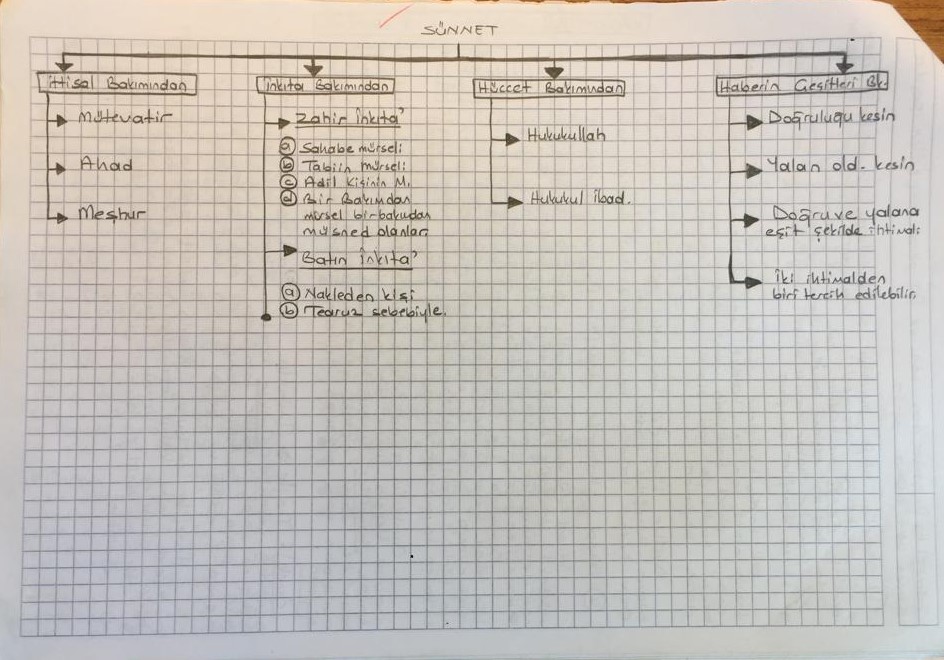 SÜNNET
İttisal Bakımından
Mütevatir
Ahad
Meşhur
İnkıta Bakımından
Zahir İnkıta'
a Sahabe mürseli
b Tabiin mürseli
c Adil Kişinin M.
d Bir Bakımdan
mürsel bir bakımdan
müsned olanlar
Batın İnkıta'
a Nakleden kişi
b Tearuz sebebiyle.
Hüccet Bakımından
Hukukullah
Hukukul ibad.
Haberin Çeşitleri Bk.
Doğruluğu kesin
Yalan old. kesin
Doğru ve yalana
eşit şekilde ihtimali
İki ihtimalden
biri tercih edilebilir